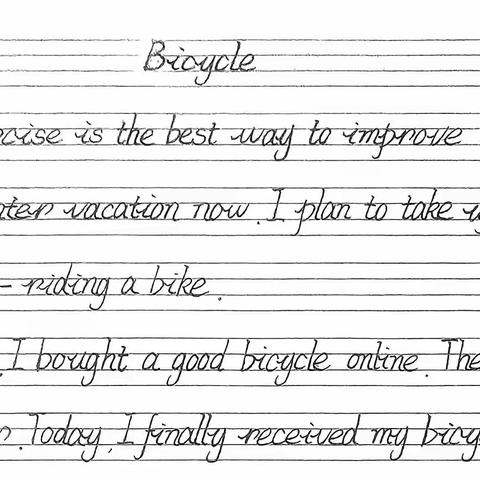 Bicycle
cise is the best way to improve
ter vacation now. I plan to take
- riding a bike.
I bought a good bicycle online. The
Today, I finally received my bicy